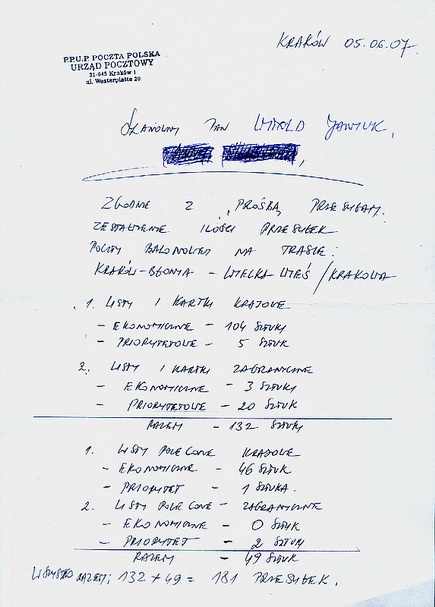 KRAKÓW 05.06.07.
P.P.U.P. POCZTA POLSKA
URZĄD POCZTOWY
31-045 Kraków 1
ul. Westerplatte 20
SZANOWNY PAN WITOLD JAWIUK,
ZGODNIE Z PROŚBĄ, PRZESYŁAM.
ZESTAWIENIE ILOŚCI PRZESYŁEK
POCZTY BALONOWEJ NA TRASIE:
KRAKÓW-BŁONIA - WIELKA WIEŚ / KRAKOWA
1. LISTY I KARTKI KRAJOWE
- EKONOMICZNE - 104 SZTUKI
- PRIORYTETOWE - 5 SZTUK
2. LISTY I KARTKI ZAGRANICZNE
- EKONOMICZNE - 3 SZTUKI
- PRIORYTETOWE - 20 SZTUK
RAZEM - 132 SZTUKI
1. LISTY POLECONE KRAJOWE
- EKONOMICZNE - 46 SZTUK
- PRIORYTET - 1 SZTUKA.
2. LISTY POLECONE - ZAGRANICZNE
- EKONOMICZNE - 0 SZTUK
- PRIORYTET - 2 SZTUKI
RAZEM - 49 SZTUK
WSZYSTKO RAZEM; 132 + 49 = 181 PRZESYŁEK.